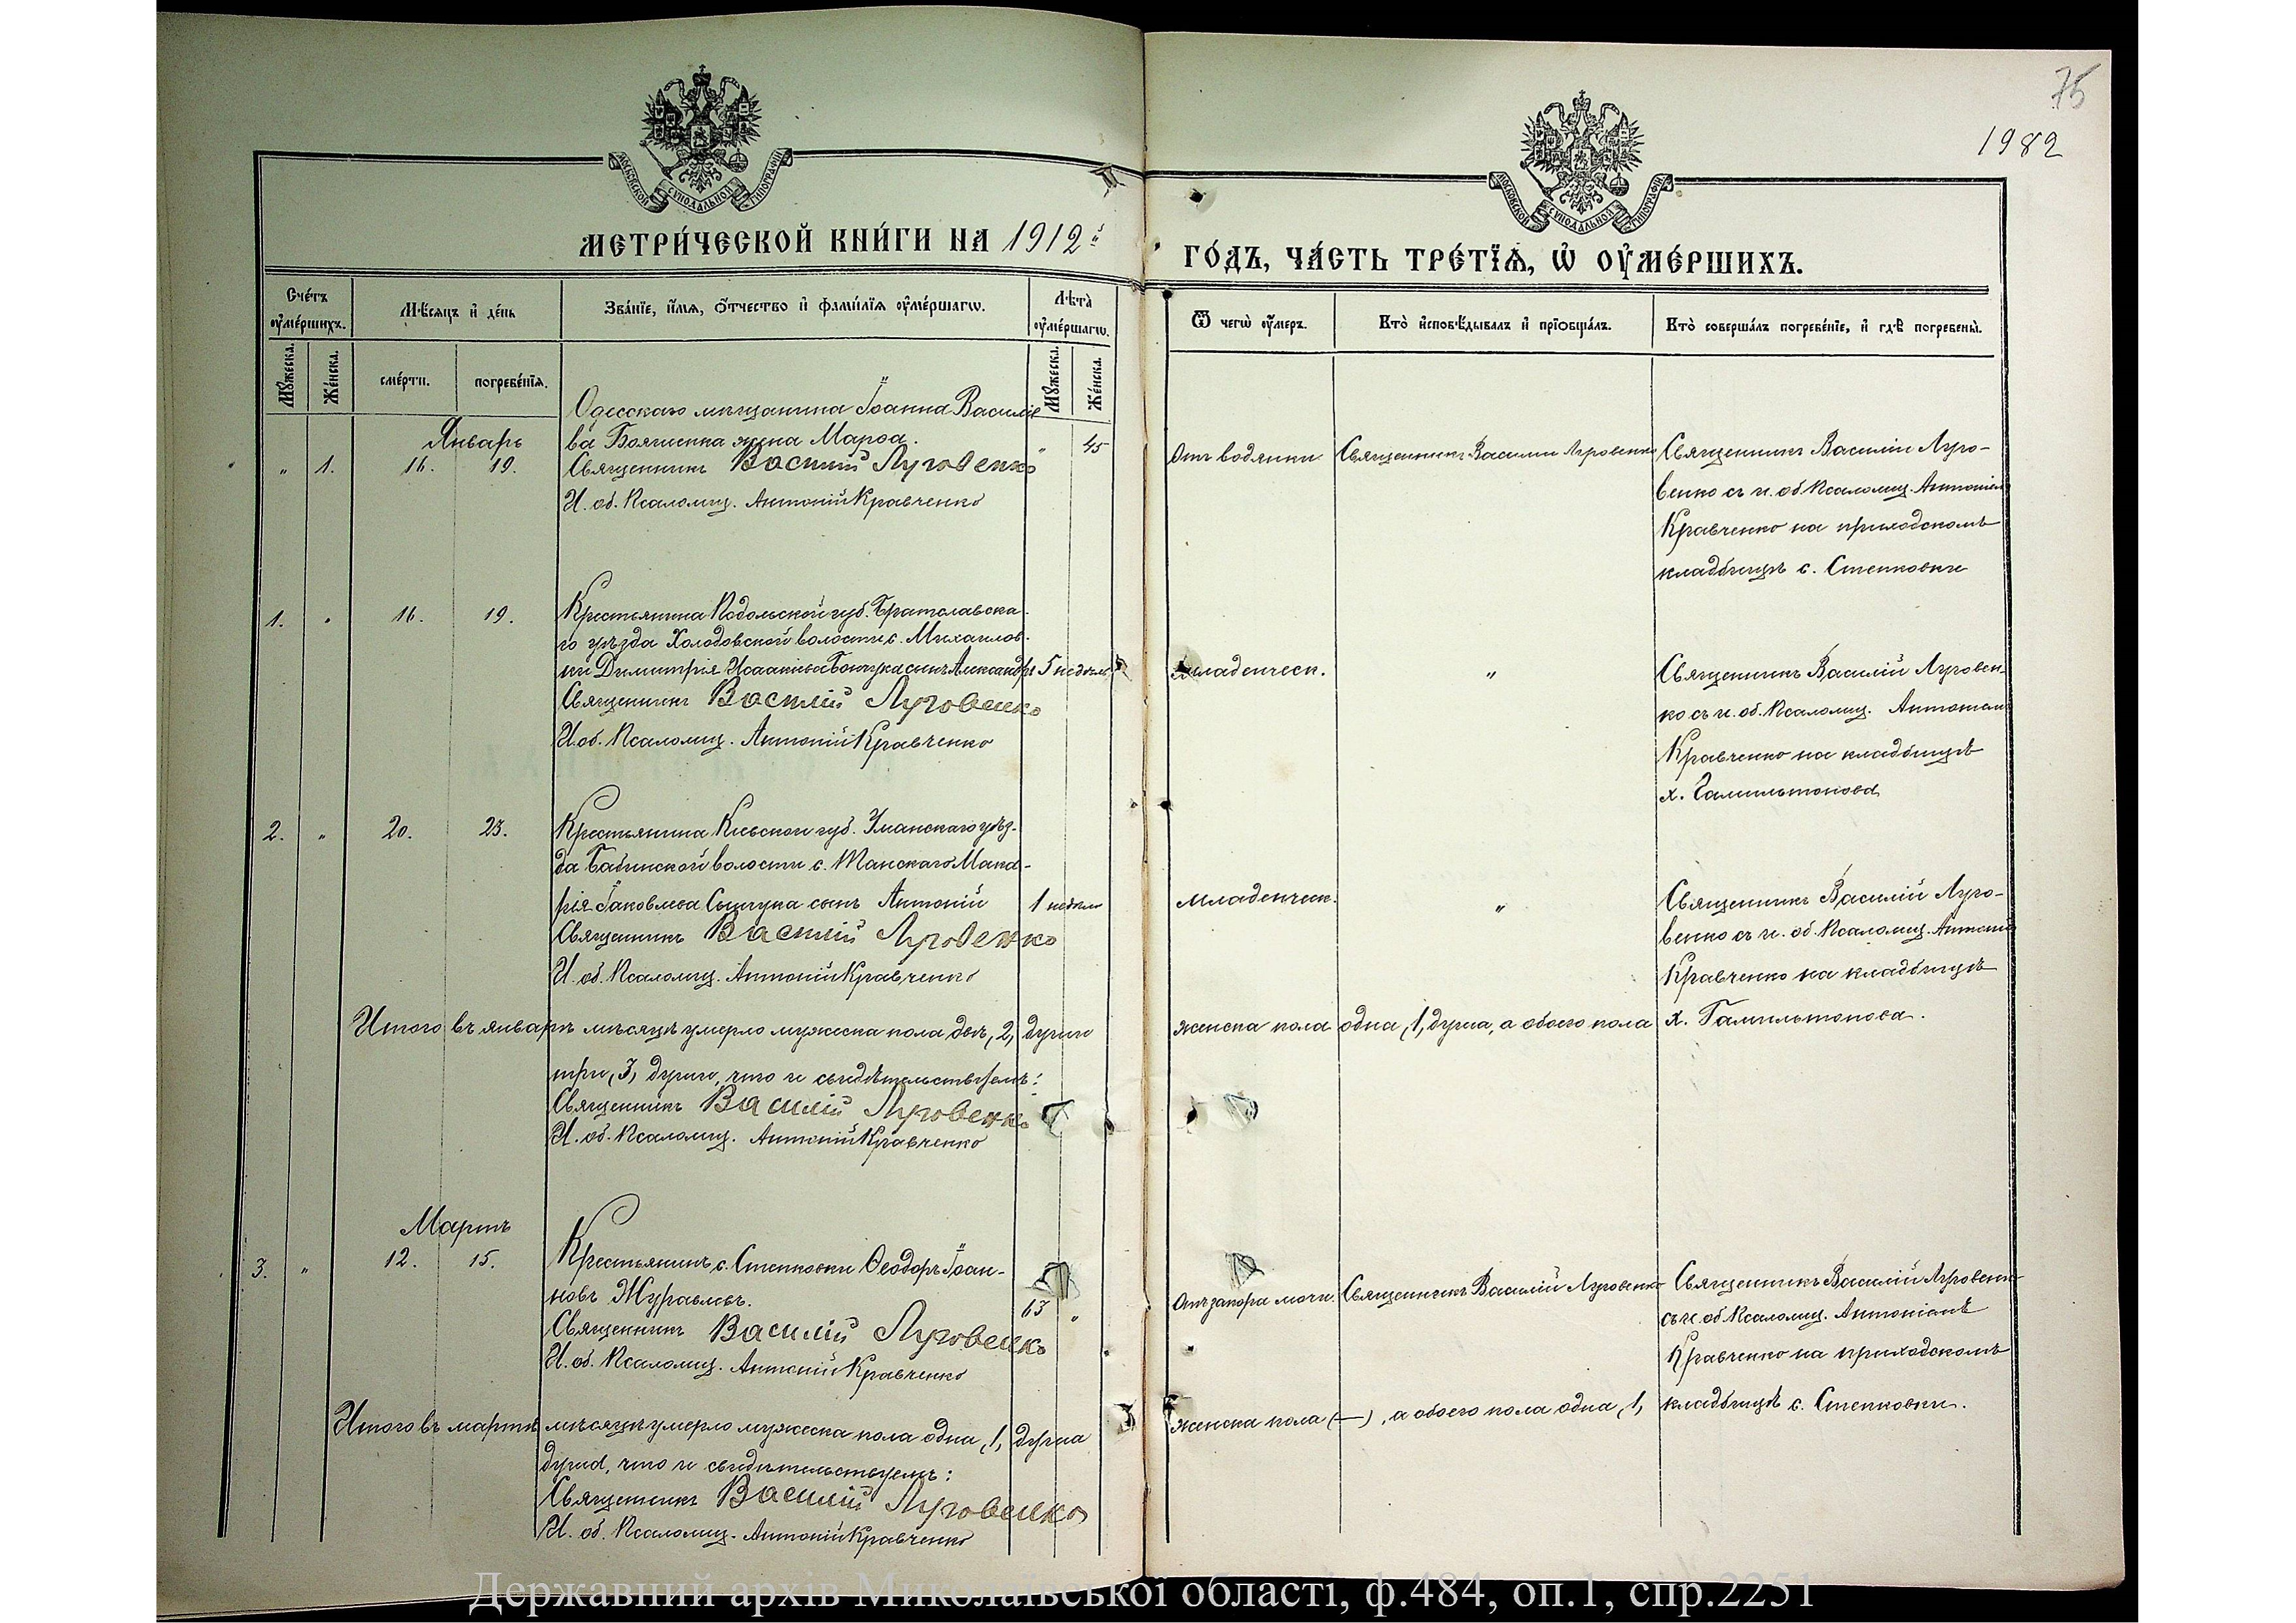 75
1982
МОСКОВСКОЙ СѴНОДАЛЬНОЙ ТИПОГРАФІИ
МОСКОВСКОЙ СѴНОДАЛЬНОЙ ТИПОГРАФІИ
МЕТРИ́ЧЕСКОЙ КНИ́ГИ НА 1912й
ГО́ДЪ, ЧА́СТЬ ТРЕ́ТЇѦ, Ѡ҆ ОУ҆МЕ́РШИХЪ.
Сче́тъ оу҆ме́ршихъ.
Мѣ́сяцъ и҆ де́нь
Зва́нїе, и҆́мѧ, ѻ҆́тчество и҆ фами́лїѧ оу҆ме́ршагѡ.
Лѣта̀ оу҆ме́ршагѡ.
Ѿ чегѡ̀ оу҆́меръ.
Кто̀ и҆сповѣ́дывалъ и҆ прїѡбща́лъ.
Кто̀ соверша́лъ погребе́нїе, и҆ гдѣ̀ погребены̀.
Мꙋ́жеска.
Же́нска.
сме́рти.
погребе́нїѧ.
Мꙋ́жеска.
Же́нска.
Январь
" 1. 16. 19.
Одесскаго мѣщанина Іоанна Василіе
ва Бояченка жена Марѳа.
" 45
Священникъ Василій Луговенко
И. об. Псаломщ. Антоній Кравченко
Отъ водянки
Священникъ Василій Луговенко
Священникъ Василій Луго-
венко съ и. об. Псаломщ. Антоніем
Кравченко на приходскомъ
кладбищѣ с. Степковки
1. " 16. 19.
Крестьянина Подольской губ. Брацлавска
го уѣзда Холодовской волости с. Михайлов-
ки Димитрія Исаакіева сынъ Александръ 5 недѣль
Священникъ Василій Луговенко
И. об. Псаломщ. Антоній Кравченко
Младенческ.
"
Священникъ Василій Луговен-
ко съ и. об. Псаломщ. Антоніем
Кравченко на кладбищѣ
х. Гамильтонова
2. " 20. 23.
Крестьянина Кіевской губ. Уманскаго уѣз-
да Бабинской волости с. Танскаго Мака-
рія Іаковлева сынъ Антоній
1 недѣли
Священникъ Василій Луговенко
И. об. Псаломщ. Антоній Кравченко
Младенческ.
"
Священникъ Василій Луго-
венко съ и. об. Псаломщ. Антоній
Кравченко на кладбищѣ
х. Гамильтонова.
Итого въ январѣ мѣсяцѣ умерло мужеска пола двѣ, 2, души
женска пола одна, 1, душа, а обоего пола
три, 3, души, что и свидѣтельствуемъ:
Священникъ Василій Луговенко
И. об. Псаломщ. Антоній Кравченко
Мартъ
3. " 12. 15.
Крестьянинъ с. Степковки Ѳеодоръ Іоан-
новъ Журавлевъ.
63 "
Священникъ Василій Луговенко
И. об. Псаломщ. Антоній Кравченко
Отъ запора мочи.
Священникъ Василій Луговенко
Священникъ Василій Луговенко
съ и. об. Псаломщ. Антоніемъ
Кравченко на приходскомъ
кладбищѣ с. Степковки.
Итого въ мартѣ мѣсяцѣ умерло мужеска пола одна, 1, душа
женска пола (—), а обоего пола одна, 1,
душа, что и свидѣтельствуемъ:
Священникъ Василій Луговенко
И. об. Псаломщ. Антоній Кравченко
Державний архів Миколаївської області, ф.484, оп.1, спр.2251